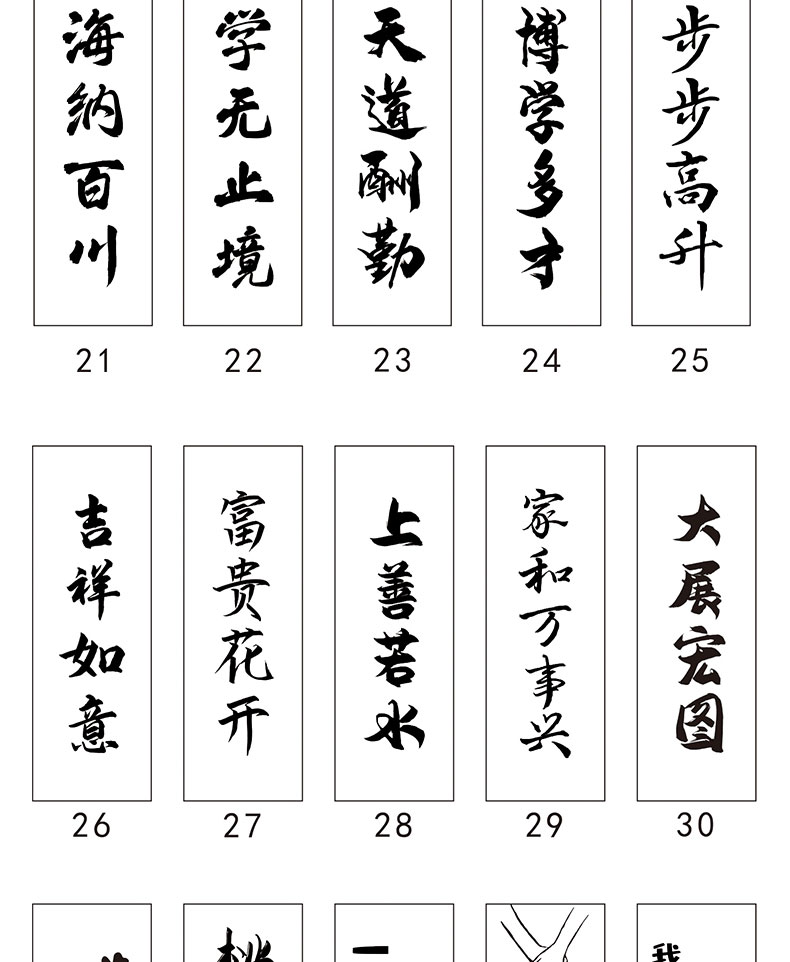 海纳百川
学无止境
天道酬勤
博学多才
步步高升
21
22
23
24
25
吉祥如意
富贵花开
上善若水
家和万事兴
大展宏图
26
27
28
29
30
我